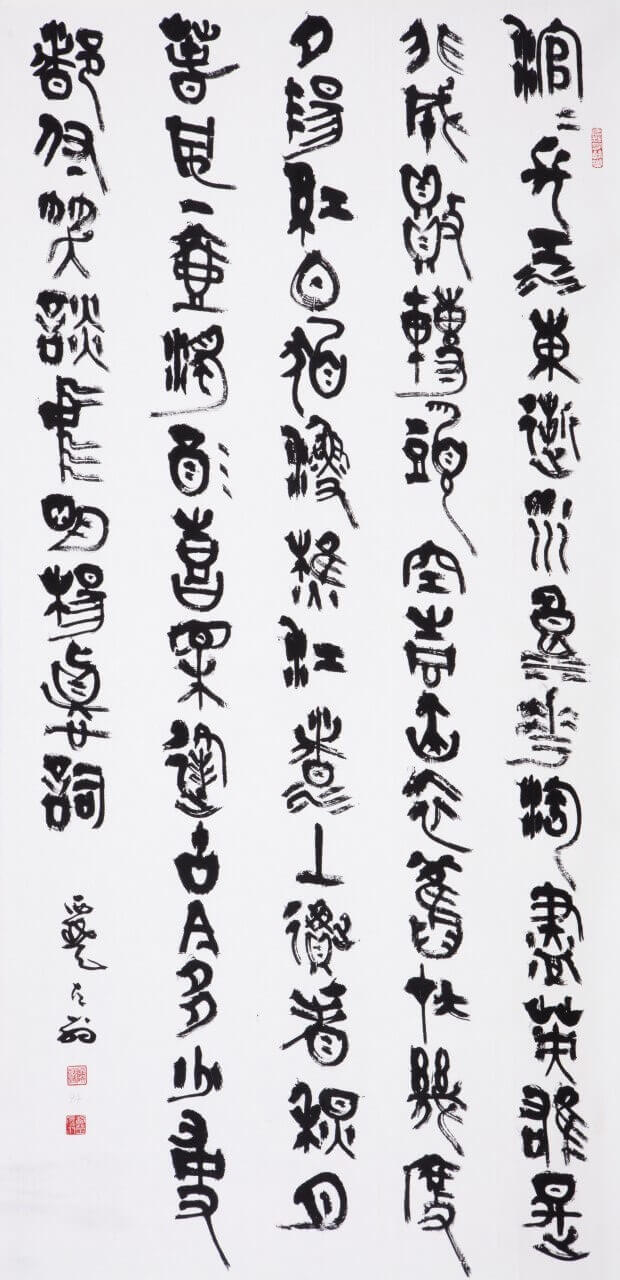 滾滾長江東逝水浪花淘盡英雄是
非成敗轉頭空青山依舊在幾度
夕陽紅白髮漁樵江渚上慣看秋月
春風一壺濁酒喜相逢古今多少事
都付笑談中明楊慎詞